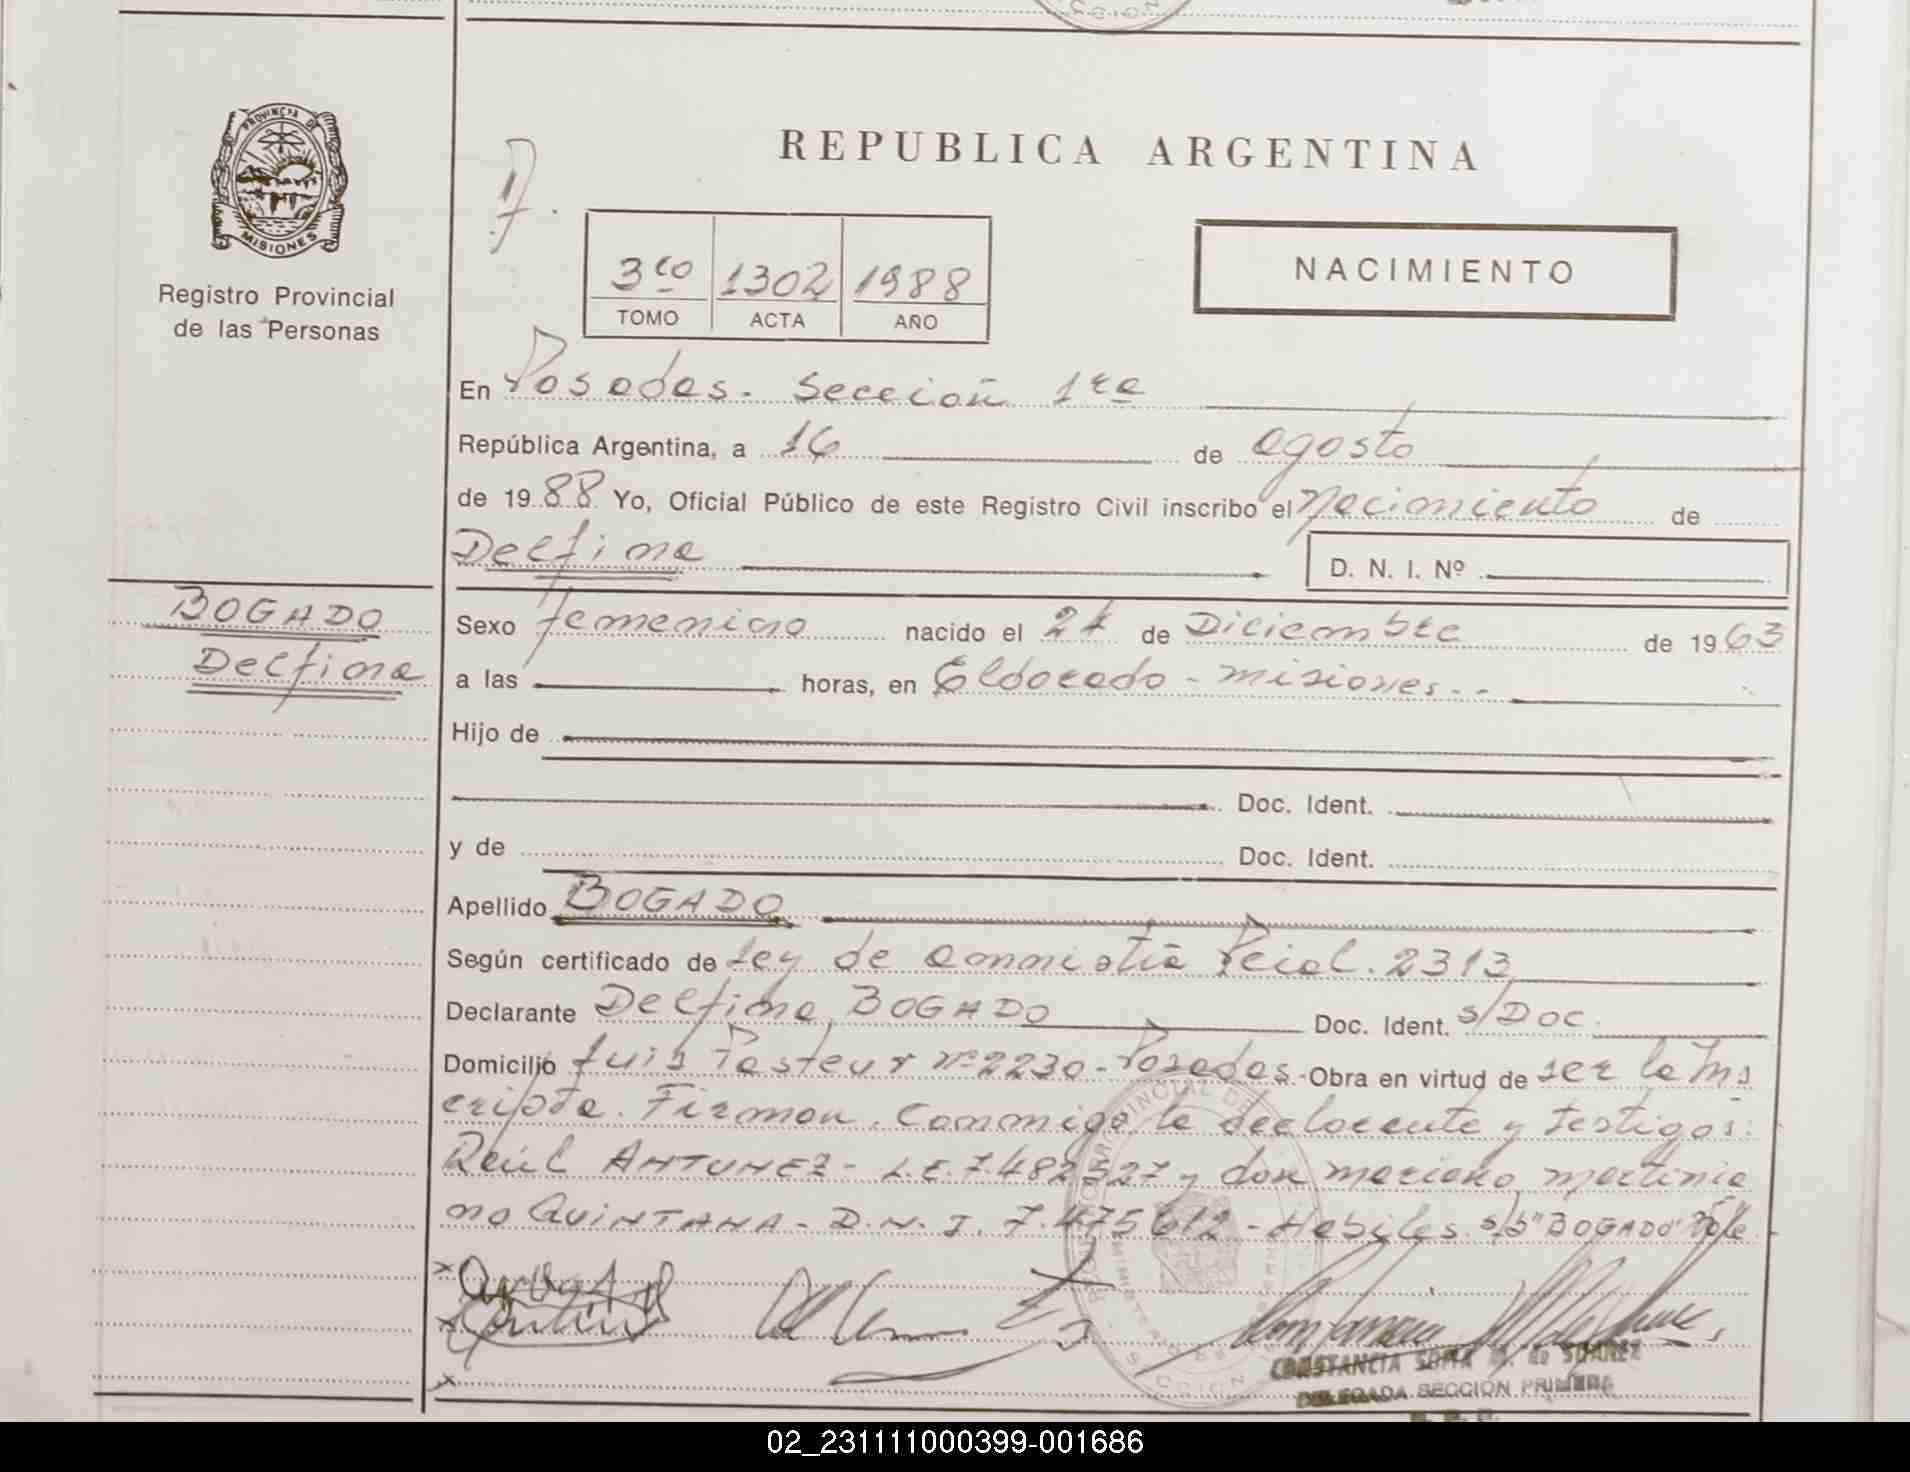 PROVINCIA DE
MISIONES
Registro Provincial
de las Personas
REPUBLICA ARGENTINA
3ro 1302 1988
TOMO ACTA AÑO
NACIMIENTO
En Posadas. Sección 1ra
República Argentina, a 16 de agosto
de 1988 Yo, Oficial Público de este Registro Civil inscribo el Nacimiento de
Delfina D. N. I. Nº
BOGADO
Delfina
Sexo femenino nacido el 24 de Diciembre de 1963
a las horas, en Eldorado - misiones.
Hijo de
Doc. Ident.
y de Doc. Ident.
Apellido BOGADO
Según certificado de Ley de amnistia Pcial. 2313
Declarante Delfina BOGADO Doc. Ident. s/Doc.
Domicilio Luis Pasteur nº 2230 - Posadas. Obra en virtud de ser la Ins
cripta. Firman. Conmigo la declarante y testigos:
Raúl ANTUNEZ - L.E. 7.482527 y don mariano martinia
no QUINTANA - D.N.I. 7.475612 - Habiles. s/b "BOGADO" Vale
CONSTANCIA SOFIA M. de SUAREZ
DELEGADA SECCION PRIMERA
02_231111000399-001686